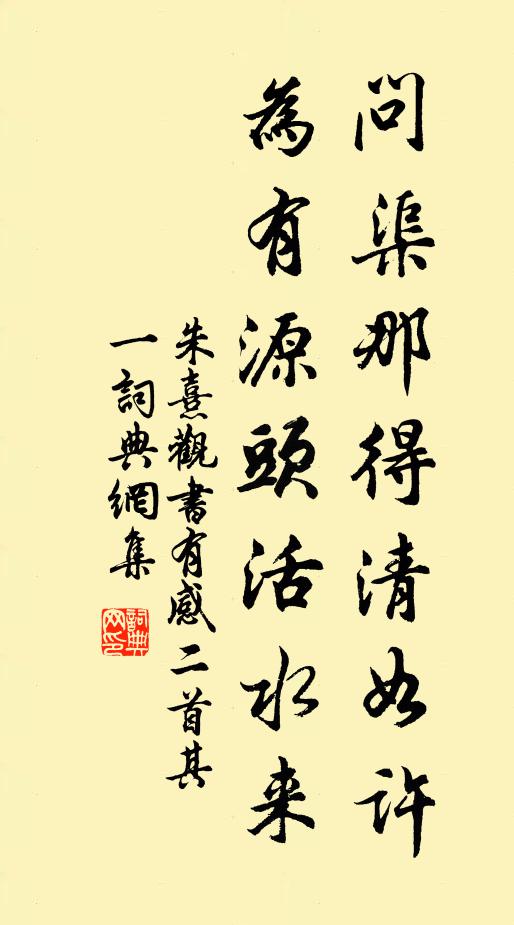 問渠那得清如許
為有源頭活水来
朱熹觀書有感二首其
一詞典網集
詞典
网印